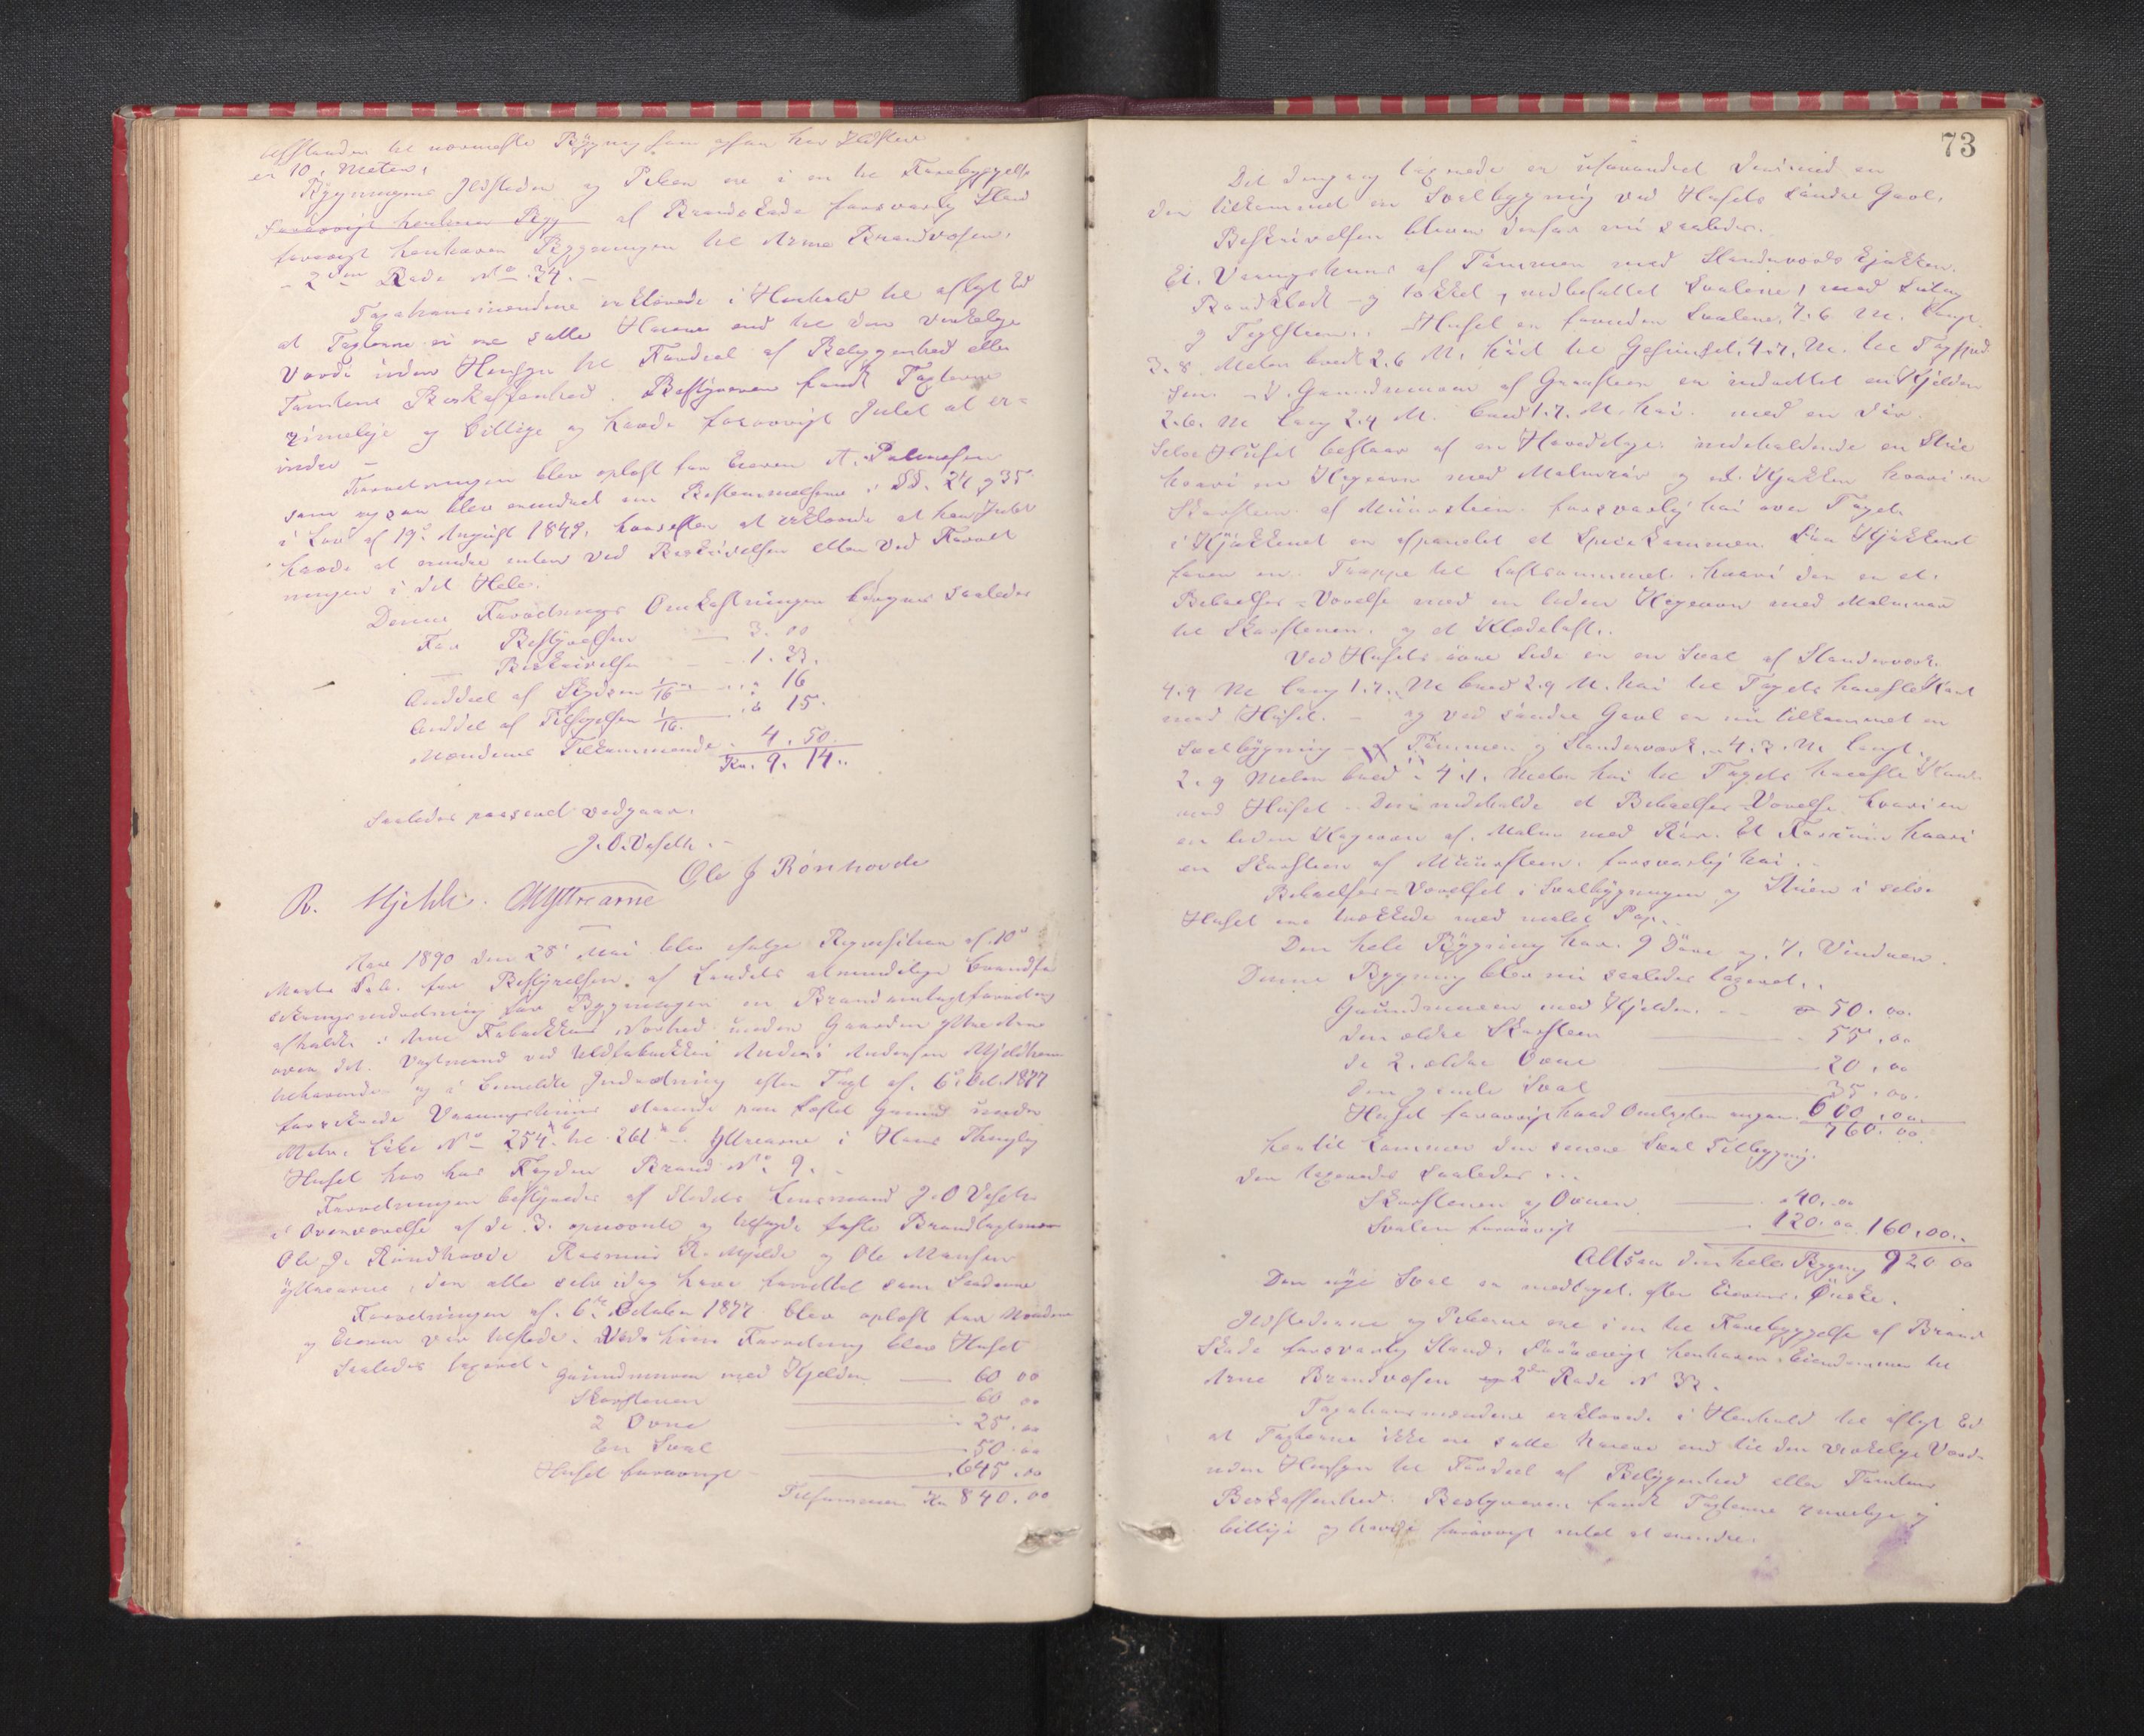 Afstanden til nærmeste Bygning som ogsaa har Ildsted
er 10, Meter,
Bygningens Ildsteder og Piben ere i en til Forebyggelse
Forøvrigt henhører Byg af Brandskade forsvarlig Stand
forøvrigt henhører Bygningen til Arne Brandvæsen,
2den Rode No 34. –
Taxationsmændene erklærede i Henhold til aflagt Ed
at Taxterne ei ere satte Høiere end til den virkelige
Værdi uden Hensyn til Fordeel af Beliggenhed eller
Tomtens Beskaffenhed. Bestyreren fandt Taxterne
rimelige og billige og havde forøvrigt Intet at er=
indre –
Forretningen blev oplæst for Eieren A. Palmesen
som ogsaa blev erindret om Bestemmelserne i §§. 24 og 35
i Lov af 19de August 1849, hvorefter at erklærede at han Intet
havde at erindre enten ved Beskrivelsen eller ved Forret
ningen i det Hele.
Denne Forretnings Omkostninger beregnes saaledes
For Bestyrelsen — 3. 00
— Beskrivelsen — 1. 33.
Anddeel af Skydsen 1/16 — " 16
Anddel af Tilsigelsen 1/16 — " 15.
Mændenes Tilkommende . 4. 50.
Kr. 9. 14..
Saaledes passeret vedgaar.
J. O. Veseth. –
Ole J Rónhovde
R. Mjelde. O M Yttrearne
Aar 1890 den 28de Mai blev ifølge Requisition af 10de
Marts d.a. fra Bestyrelsen af Landets almindelige Brandfor
sikringsindretning for Bygninger en Brandomtaxtforretning
afholdt i Arne Fabrikker Nærhed under Gaarden Yttre Arne
over det Vagtmand ved Uldfabrikken Anders Andersen Mjeldheim
tilhørende og i bemeldte Indretning efter Taxt af 6te Oct. 1877
forsikrede Vaaningshuus staaende paa fæstet Grund under
Matr. Løbe No 254 b til 261 b Yttrearne i Haus Thinglag
Huset har hos Fogden Brand No 9. –
Forretningen bestyredes af Stedets Lensmand J. O Veseth
i Overværelse af de 3. opnævnte og tilsagte faste Brandtaxtmænd
Ole J. Rundhovde Rasmus R. Mjelde og Ole Monsen
Yttrearne, den alle selv idag have forrettet som Saadanne
Forretningen af 6te October 1877 blev oplæst for Mændene
og Eieren var tilstede. Ved hiin Forretning blev Huset
saaledes taxeret.
Grundmuren med Kjelder — 60 00
Skorstenen — 60 00
2 Ovne — 25. 00
En Sval — 50. 00
Huset forøvrigt — 645. 00
Tilsammen Kr 840. 00
73
Det dengang taxerede er uforandret Derimod er
der tilkommet en Svalbygning ved Husets søndre Gavl,
Beskrivelsen bliver derfor nu saaledes.
Et. Vaaningshuus af Tømmer med Standerværks Kjøkken.
Bordklædt og tækket, indbefattet Svalene, med
og Teglsteen. Huset er foruden Svalene 7.6 M. langt
3.8. Meter bredt 2.6 M. høit til Gesimset, 4.7. M. til Tagspid
sen. – I Grundmuren af Graasteen er indrettet en Kjelder
2.6. M lang 2.4 M. bred 1.7. M. høi. med en Dør.
Selve Huset bestaar af en Hovedetage indeholdende en Stue
hvori en Kogeovn med Malmrør og et Kjøkken hvori en
Skorsteen af Muursteen forsvarlig høi over Taget.
i Kjøkkenet er afpanelet et Speisekammer. Fra Kjøkkenet
fører en Trappe til Loftsrummet. hvori der er et.
Beboelses=Værelse med en liden Kogeovn med Malmrør
til Skorstenen. og et Klædeloft..
Ved Husets øvre Side er en Sval af Standerværk.
4.9 M lang 1.7. M bred 2.9 M. høi til Tagets høieste Kant
mod Huset. – og ved søndre Gavl er nu tilkommet en
Svalbygning – af Tømmer og Standerværk, 4.3. M langt,
2.9 Meter bred 4.1. Meter høi til Tagets høieste Kant
mod Huset – Den indeholde et Beboelses Værelse hvori en
en liden Kogeovn af Malm med Rør. Et Forrum hvori
en Skorsteen af Muursteen. forsvarlig høi..
Beboelses=Værelset i Svalbygningen og Stuen i selve
Huset ere trækkede med malet Pap..
Den hele Bygning har. 9 Døre og 7. Vinduer.
Denne Bygning blev nu saaledes taxeret..
Grundmuren med Kjelder. — 50. 00.
Den ældre Skorsteen — 55. 00
de 2. ældre Ovne — 20. 00
Den gamle Sval — 35. 00.
Huset forøvrigt 600. 00.
760. 00.
Hertil kommer den senere Sval Tilbygning.
den taxeredes saaledes...
Skorstenen og Ovnen — 40. 00
Svalen forøvrigt — 120. 00 160. 00..
Altsaa den hele Bygning 920 00
Den nye Sval er medtaget efter Eierens Ønske.
Ildstederne og Piberne ere i en til Forebyggelse af Brand
Skade forsvarlig Stand. Forøvrigt henhører Eiendommen til
Arne Brandvæsen 2den Rode N 32.
Taxationsmændene erklærede i Henhold til aflagt Ed
at Taxterne ikke ere satte høiere end til den virkelige Værdi
uden Hensyn til Fordeel af Beliggenhed eller Tomtens
Beskaffenhed. Bestyreren fandt Taxterne rimelige og
billige og havde forøvrigt intet at erindre.